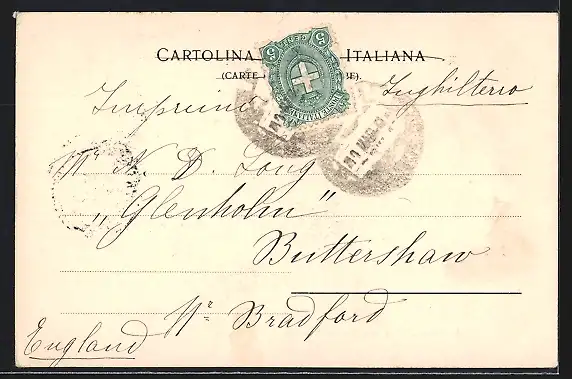 CARTOLINA ITALIANA
(CARTE
Imprimé Inghilterra
5 5
Mr N. D. Long
"Glenholm"
Buttershaw
Nr Bradford
England